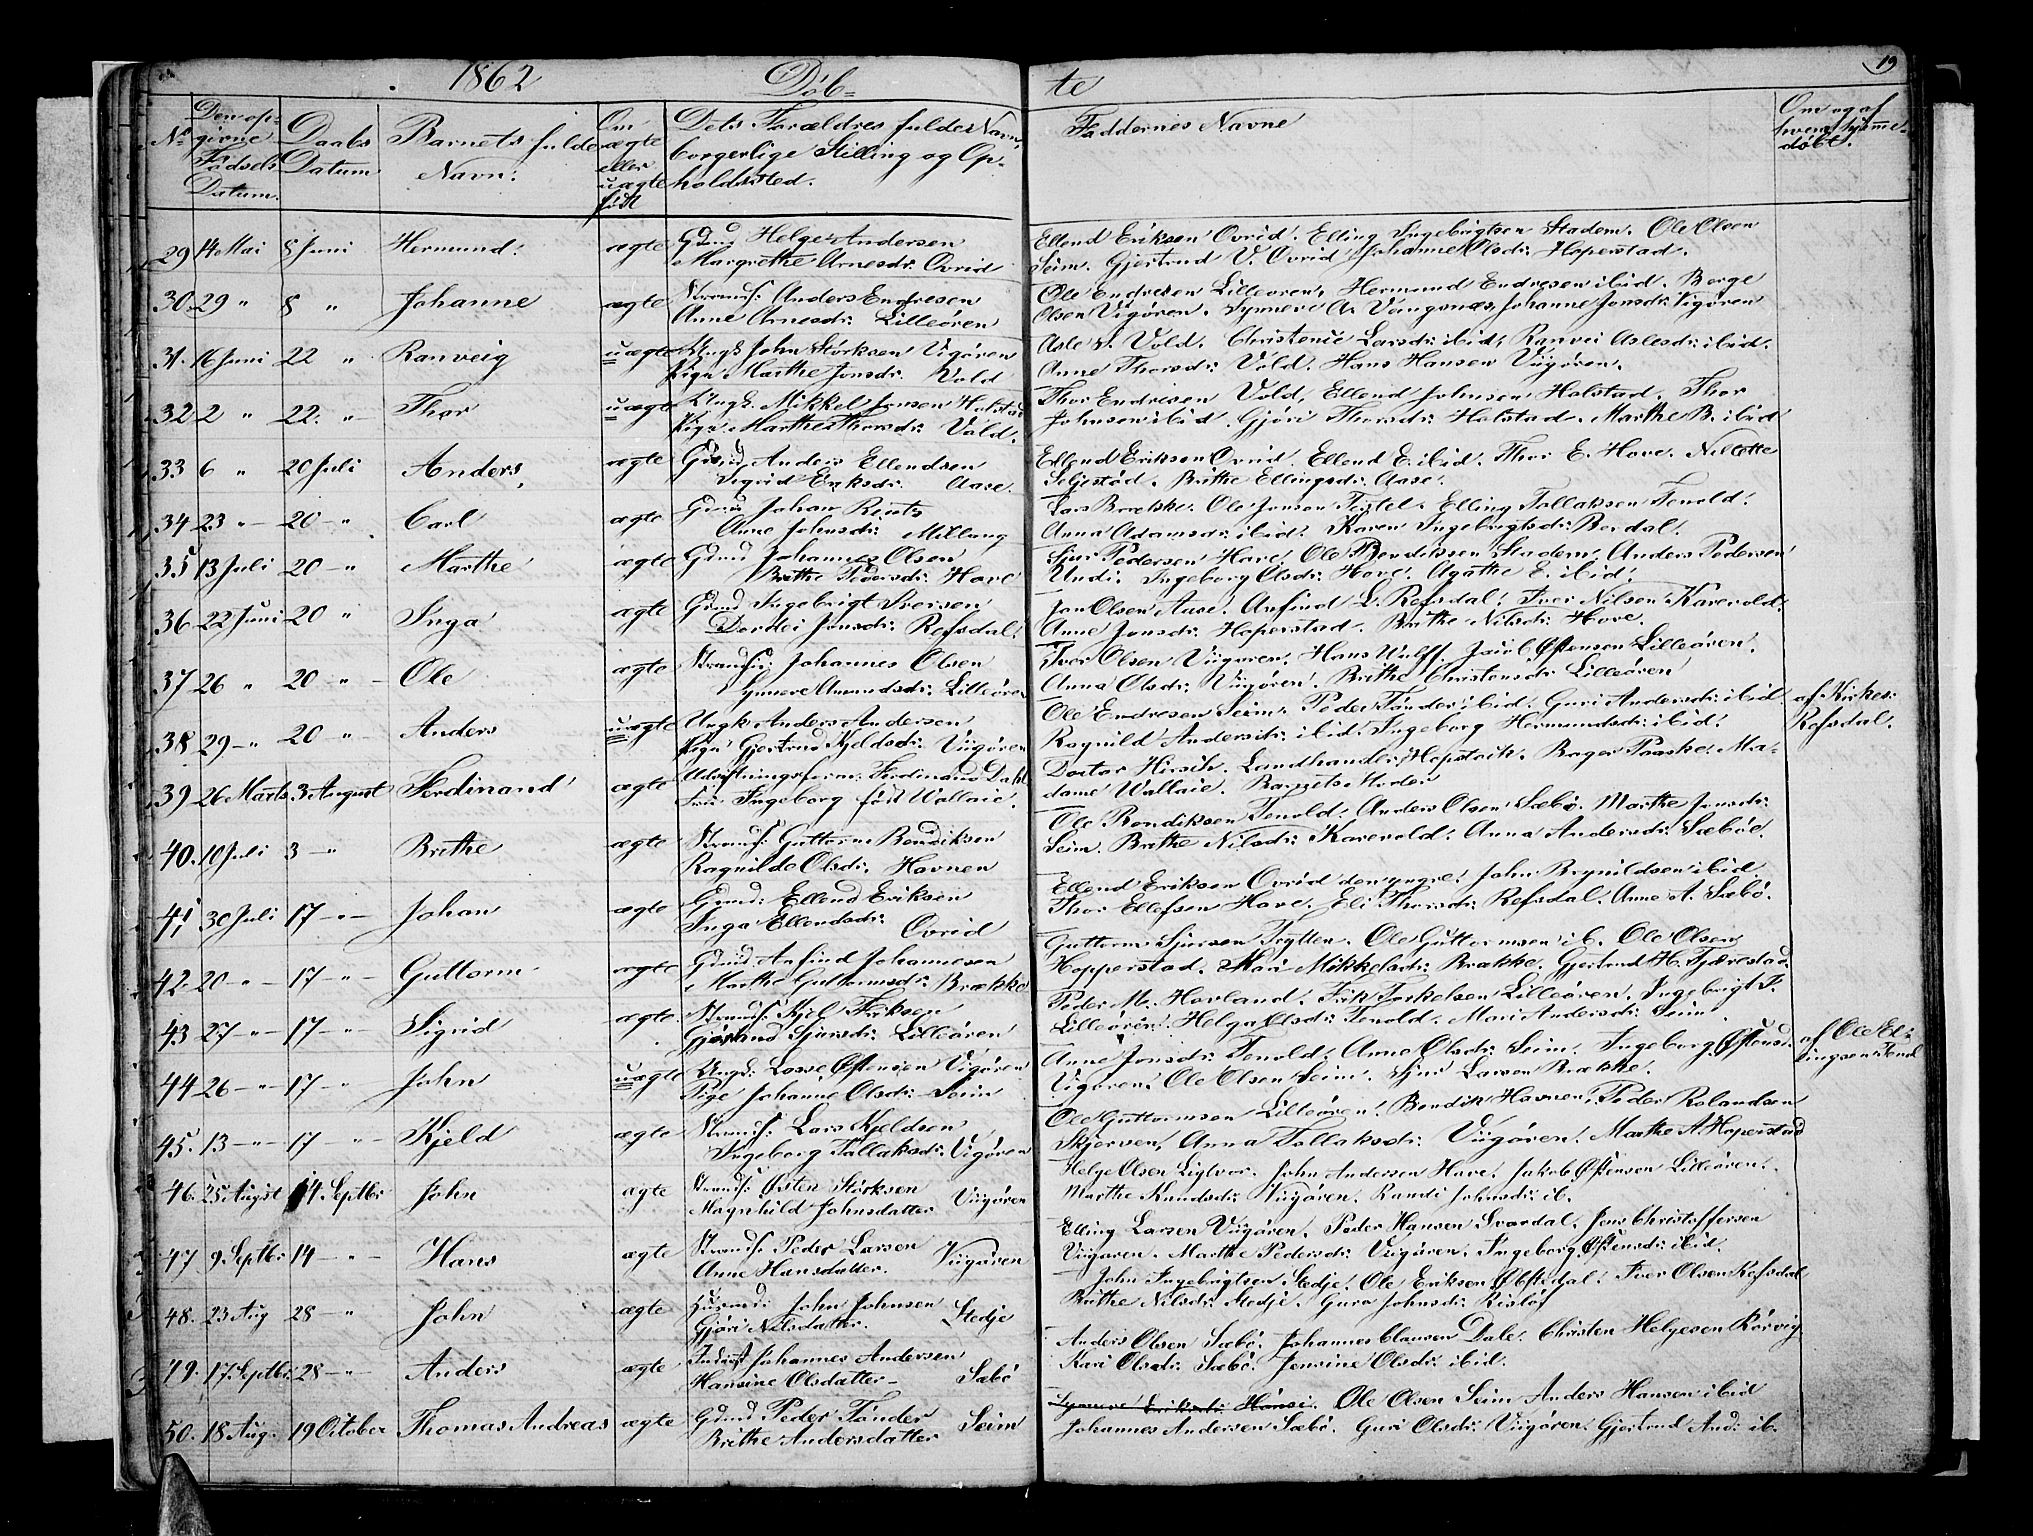 1862 Döb-
te 19
No | Den opgivne Födsels Datum. | Daabs Datum | Barnets fulde Navn. | Om ægte eller uægte födt | Dets Forældres fulde Navn, borgerlige Stilling og Opholdssted. | Faddernes Navne | Om og af hvem hjemmedöbt.
29 14 Mai 8 Juni Hermund. ægte Gdmd Helge Andersen
Margrethe Arnesdr: Ovrid
Ellend Eriksen Ovrid. Elling Ingebrigtsen Stadem. Ole Olsen
Seim. Gjertrud V. Ovrid Johanne Olsdr: Hoperstad.
30. 29 " 8 " Johanne ægte Strands: Anders Endresen
Anne Arnesdr: Lilleören
Ole Endresen Lilleören, Hermund Endresen ibid. Börge
Olsen Vigören. Synneve A. Vangsnæs, Johanne Jonsdr: Vigören
31. 16 Juni 22 " Ranveig uægte Ungk John Störksen Vigören
Pige Marthe Jonsdr. Vold
Asle Vold. Christense Larsdr: ibid, Ranvei Aslesdr: ibid.
Anne Thorsdr: Vold. Hans Hansen Viigören.
32 2 " 22. " Thor uægte Ungk. Mikkel Jensen Holstad
Pige Marthe Thorsdr: Vold.
Thor Endresen Vold, Ellend Johnsen Holstad. Thor
Johnsen ibid. Gjöri Thorsdr: Holstad. Marthe B. ibid
33 6 " 20 Juli Anders, ægte Gdmd Anders Ellendsen
Sigrid Eriksdr: Aase.
Ellend Eriksen Ovrid. Ellend E. ibid. Thor E. Hove.
Seljestad. Brithe Ellingsdr: Aase.
34 23 " 20 " Carl ægte Gdmd Johan Rentz
Anne Johnsdr: Millung
Lars Brække. Ole Jonsen Feitel. Elling Tollaksen Tenold.
Anna Adamsdr: ibid. Karen Ingebrigtsdr: Bordal.
35 13 Juli 20 " Marthe ægte Gdmd Johannes Olsen
Brithe Pedersdr: Hove
Sjur Pedersen Hove Ole Bendiksen Stadem, Anders Pedersen
Undi. Ingeborg Olsdr: Hove. Agathe E. ibid.
36 22 Juni 20 " Inga ægte Gdmd Ingebrigt Iversen
Dordei Jonsdr: Refsdal.
Jon Olsen Aase. Anfind L. Refsdal. Iver Nilsen Karevold.
Anne Jonsdr: Hoperstad. Brithe Nilsdr: Hove.
37 26 " 20 " Ole ægte Strands: Johannes Olsen
Synneve Amundsdr: Lilleören
Iver Olsen Viigören. Hans Wulff. Östensen Lilleören.
Anna Olsdr: Viigören. Brithe Christensdr: Lilleören
38 29 " 20 " Anders uægte Ungk Anders Andersen
Pige Gjertrud Kjeldsdr: Viigören
Ole Endresen Seim. Peder Tönder ibid. Guri Andersdr: ibid
Ragnild Andersdr: ibid. Ingeborg Hermundsdr: ibid.
af Kirkes: Refsdal.
39 26 Marts 3 August Ferdinand ægte Udskiftningsform. Ferdinand Dahl
Ingeborg födt Wallaie.
Doctor Hirsch. Landhandler Hopstock. Bager Paaske. Madame Wallaie. Barnets Moder
40. 10 Juli 3 " Brithe ægte Strands: Guttorm Bendiksen
Ragnilde Olsdr: Havnen
Ole Bendiksen Tenold. Anders Olsen Sæbö. Marthe Jonsdr:
Seim. Brithe Nilsdr: Karevold. Anna Andersdr: Sæböe.
41 30 Juli 17 " Johan ægte Gdmd: Ellend Eriksen
Inga Ellendsdr: Ovrid
Ellend Eriksen Ovrid den yngre. John Brynildsen ibid
Thor Ellefsen Hove. Eli Thorsdr: Refsdal. Anne A. Sæbö.
42 20 " 17 " Guttorm ægte Gdmd: Anfind Johannesen
Marthe Guttormsdr: Brække
Guttorm Sjursen Tryttin. Ole Guttormsen ib. Ole Olsen
Hopperstad. Mari Mikkelsdr: Brække. Gjertrud H. Tjærestad.
43 27 " 17 " Sigrid ægte Strands: Kjel Eriksen
Gjertrud Sjursdr: Lilleören
Peder M. Hovland. Erik Torkelsen Lilleören. Ingebrigt T.
Lilleören. Helga Olsdr: Tenold. Mari Andersdr: Seim.
44 26 " 17 " John uægte Ungk: Lasse Östensen Vigören
Pige Johanne Olsdr: Seim
Anne Jonsdr: Tenold. Anne Olsdr: Seim. Ingeborg Östensd.
Vigören. Ole Olsen Seim. Sjur Larsen Brække.
af Ole Ellingsen Tenol
45. 13 " 17 " Kjeld ægte Strands: Lars Kjeldsen
Ingeborg Tollaksdr: Vigören
Ole Guttormsen Lilleören. Bendik Havnen, Peder Rolandsen
Skjerven, Anna Tollaksdr: Viigören. Marthe A. Hoperstad
46. 25 August 14. Septbr John ægte Strands: Östen Störksen
Magnhild Johnsdatter Viigören
Helge Olsen Ligtvor. John Andersen Hove. Jakob Östensen Lilleören.
Marthe Knudsdr: Viigören. Randi Johnsdr: ib.
47. 9. Septbr 14 " Hans ægte Strands: Peder Larsen
Anne Hansdatter. Viigören
Elling Larsen Viigören. Peder Hansen Svardal, Jens Christoffersen
Viigören. Marthe Pedersdr: Viigören. Ingeborg Östensdr: ibid.
48. 23 Aug 28 " John ægte Husmd: John Johnsen
Gjöri Nilsdatter. Stedje
John Ingebrigtsen Stedje. Ole Eriksen Öbstedal. Iver Olsen Refsdal
Brithe Nilsdr: Stedje. Gura Johnsdr: Risløf
49. 17. Septbr. 28 " Anders ægte Inderst Johannes Andersen
Hansine Olsdatter Sæbö
Anders Olsen Sæbö. Johannes Clausen Dale. Christen Helgesen Rörvig
Kari Olsdr: Sæbö. Jensine Olsdr. ibid.
50. 18 Aug. 19 October Thomas Andreas ægte Gdmd Peder Tönder
Brithe Andersdatter Seim
Synneve Eriksdr: Hönsi. Ole Olsen Seim Anders Hansen ibid
Johannes Andersen Sæbö. Guri Olsdr: Viigören. Gjertrud And: ib.